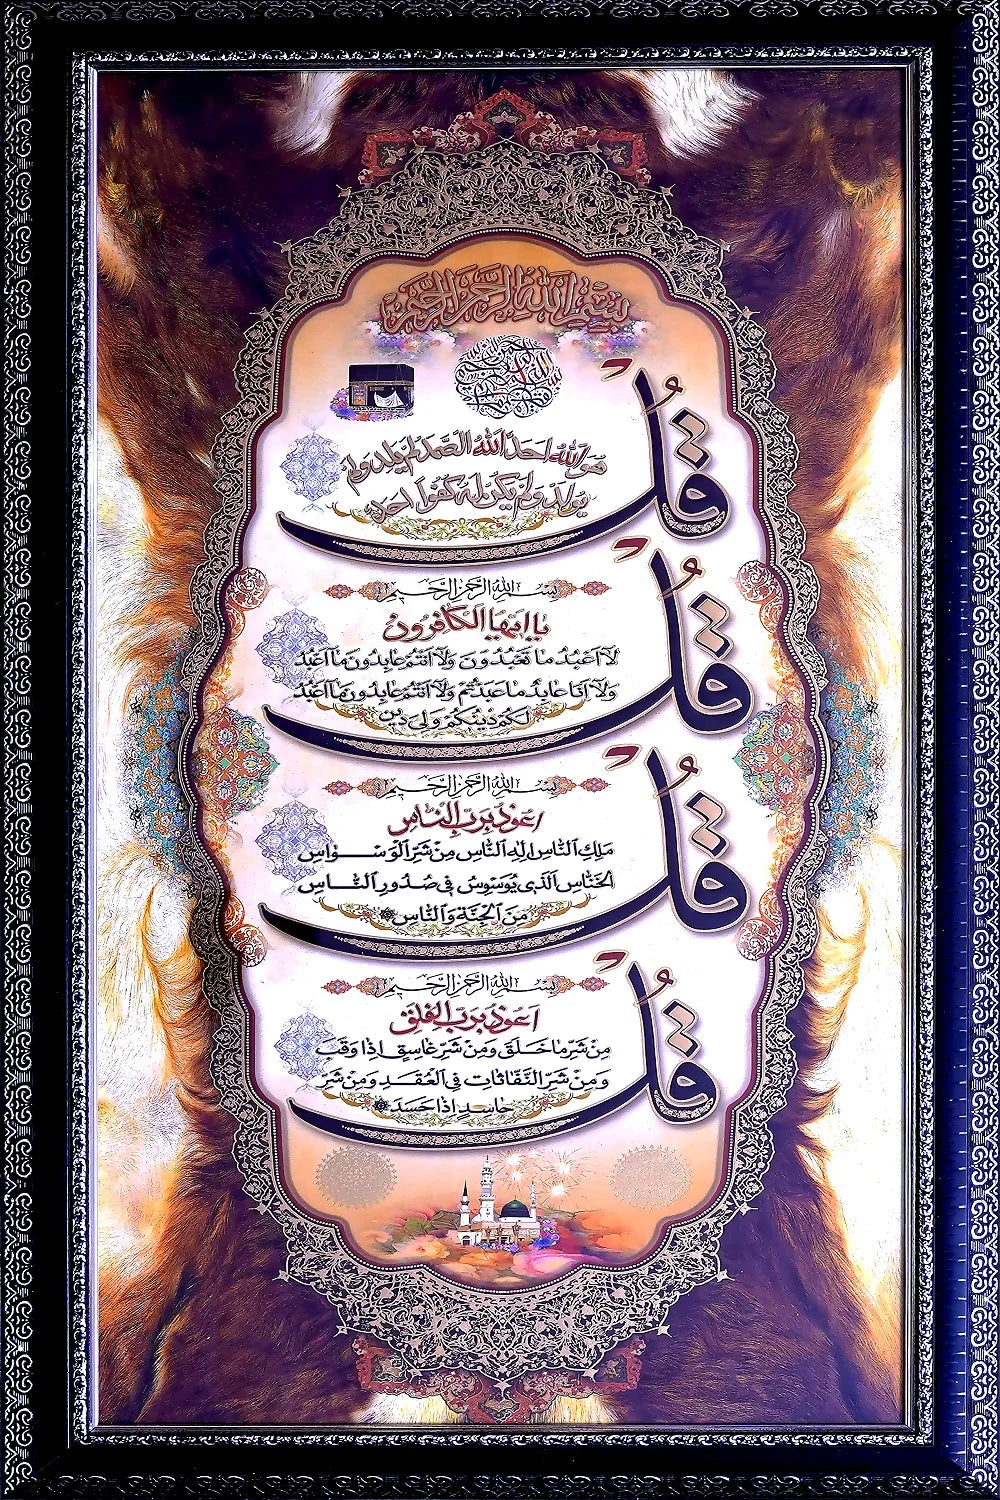 بِسْمِ اللهِ الرَّحْمٰنِ الرَّحِيمِ
قُلْ
هُوَ اللهُ اَحَدٌ اَللهُ الصَّمَدُ لَمْ يَلِدْ وَلَمْ
يُولَدْ وَلَمْ يَكُنْ لَهُ كُفُوًا اَحَدٌ
بِسْمِ اللهِ الرَّحْمٰنِ الرَّحِيمِ
قُلْ
يَا اَيُّهَا الْكَافِرُونَ
لَا اَعْبُدُ مَا تَعْبُدُونَ وَلَا اَنْتُمْ عَابِدُونَ مَا اَعْبُدُ
وَلَا اَنَا عَابِدٌ مَا عَبَدْتُمْ وَلَا اَنْتُمْ عَابِدُونَ مَا اَعْبُدُ
لَكُمْ دِينُكُمْ وَلِيَ دِينِ
بِسْمِ اللهِ الرَّحْمٰنِ الرَّحِيمِ
قُلْ
اَعُوذُ بِرَبِّ النَّاسِ
مَلِكِ النَّاسِ اِلٰهِ النَّاسِ مِنْ شَرِّ الْوَسْوَاسِ
الْخَنَّاسِ الَّذِي يُوَسْوِسُ فِي صُدُورِ النَّاسِ
مِنَ الْجِنَّةِ وَالنَّاسِ
بِسْمِ اللهِ الرَّحْمٰنِ الرَّحِيمِ
قُلْ
اَعُوذُ بِرَبِّ الْفَلَقِ
مِنْ شَرِّ مَا خَلَقَ وَمِنْ شَرِّ غَاسِقٍ اِذَا وَقَبَ
وَمِنْ شَرِّ النَّفَّاثَاتِ فِي الْعُقَدِ وَمِنْ شَرِّ
حَاسِدٍ اِذَا حَسَدَ